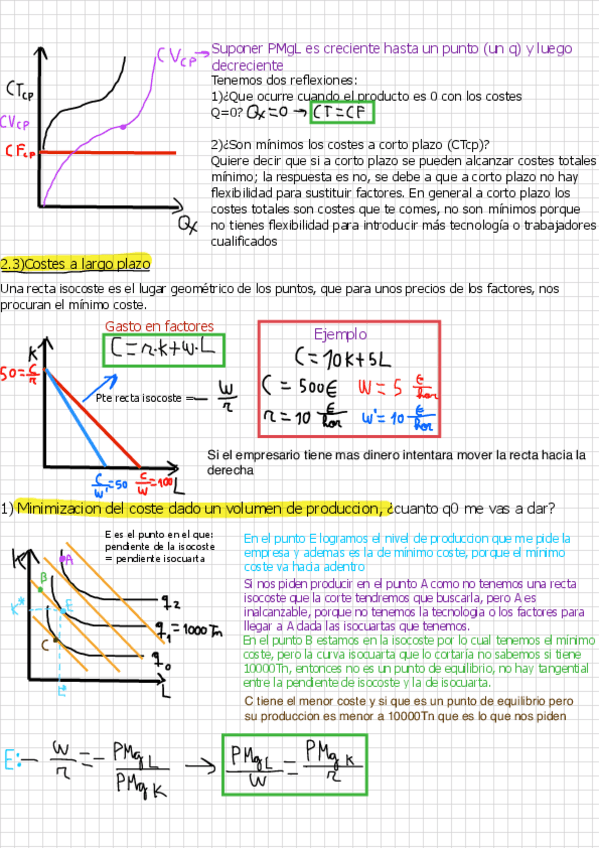 CVcp → Suponer PMgL es creciente hasta un punto (un q) y luego
decreciente
Tenemos dos reflexiones:
1)¿Que ocurre cuando el producto es 0 con los costes
Q=0? Qx=0 → CT=CF
CTcp
CVcp
CFcp
Qx
2)¿Son mínimos los costes a corto plazo (CTcp)?
Quiere decir que si a corto plazo se pueden alcanzar costes totales
mínimo; la respuesta es no, se debe a que a corto plazo no hay
flexibilidad para sustituir factores. En general a corto plazo los
costes totales son costes que te comes, no son mínimos porque
no tienes flexibilidad para introducir más tecnología o trabajadores
cualificados
2.3)Costes a largo plazo
Una recta isocoste es el lugar geométrico de los puntos, que para unos precios de los factores, nos
procuran el mínimo coste.
Gasto en factores
C=r·k+w·L
K
50=C/r
Pte recta isocoste =- w/r
C/w'=50
C/w=100
L
Ejemplo
C=10k+5L
C=500€ w=5 €/hor
r=10 €/hor w'=10 €/hor
Si el empresario tiene mas dinero intentara mover la recta hacia la
derecha
1) Minimizacion del coste dado un volumen de produccion, ¿cuanto q0 me vas a dar?
E es el punto en el que:
pendiente de la isocoste
= pendiente isocuarta
K
A
B
K*
E
C
q2
q1=1000Tn
q0
L*
L
En el punto E logramos el nivel de produccion que me pide la
empresa y ademas es la de mínimo coste, porque el minimo
coste va hacia adentro
Si nos piden producir en el punto A como no tenemos una recta
isocoste que la corte tendremos que buscarla, pero A es
inalcanzable, porque no tenemos la tecnologia o los factores para
llegar a A dada las isocuartas que tenemos.
En el punto B estamos en la isocoste por lo cual tenemos el minimo
coste, pero la curva isocuarta que lo cortaria no sabemos si tiene
10000Tn, entonces no es un punto de equilibrio, no hay tangential
entre la pendiente de isocoste y la de isocuarta.
C tiene el menor coste y si que es un punto de equilibrio pero
su produccion es menor a 10000Tn que es lo que nos piden
E: - w/r = - PMgL/PMgK → PMgL/w = PMgK/r